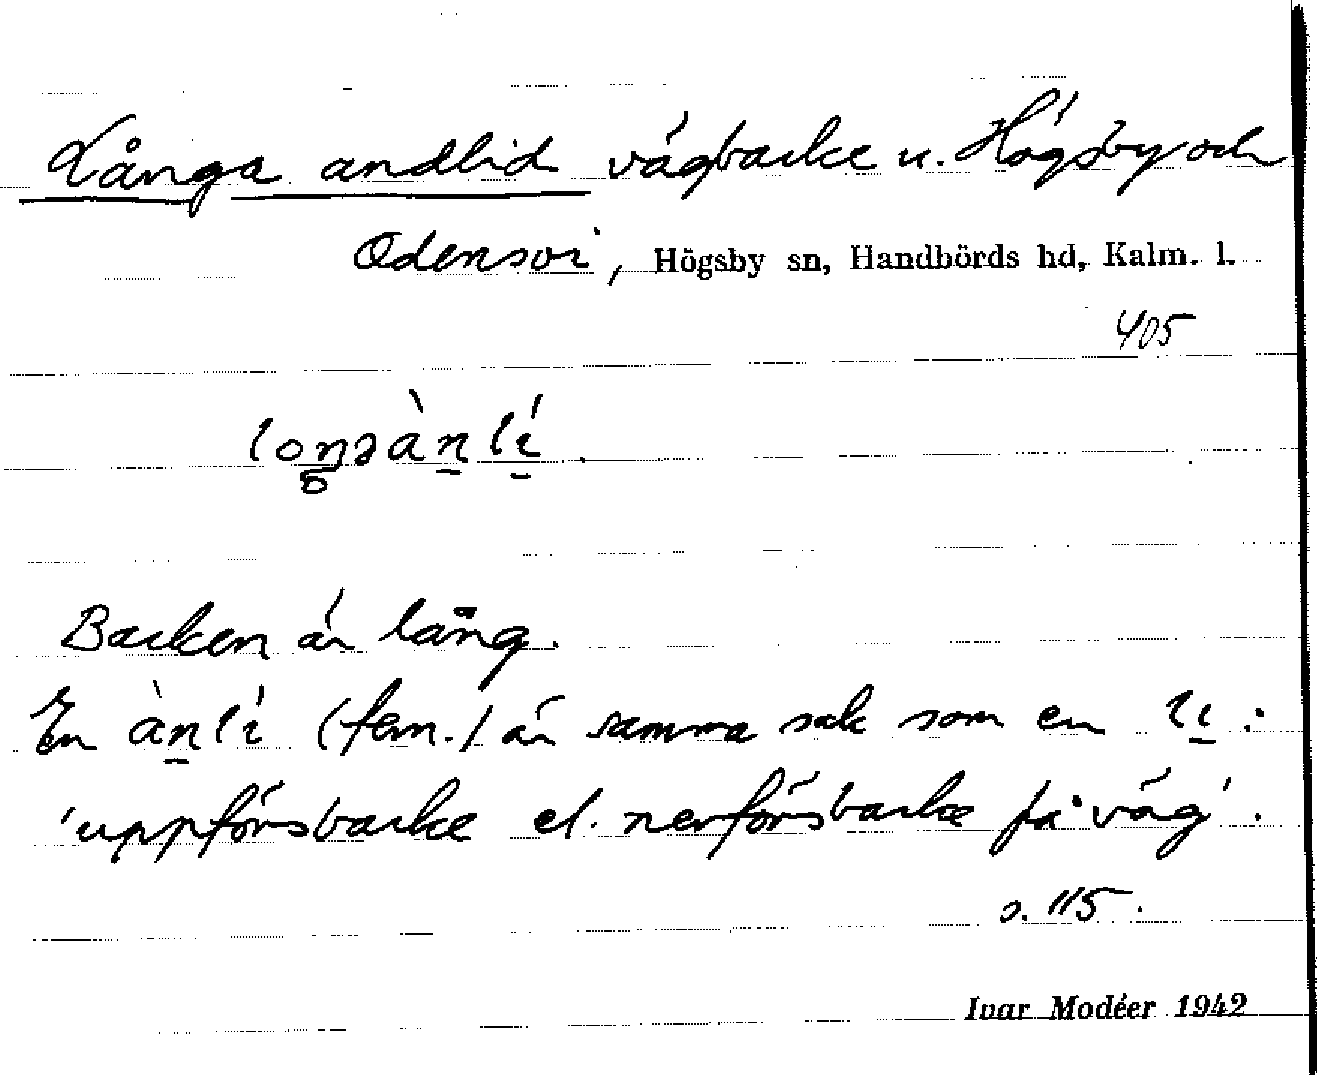 Långa andlid vägbacke u. Högsby och
Odensvi, Högsby sn, Handbörds hd, Kalm. l.
405
loŋəàn̠lí̠.
Backen är lång.
En àn̠lí (fem.) är samma sak som en lı̠:
'uppförsbacke el. nerförsbacke på väg'.
s. 115.
Ivar Modéer 1942